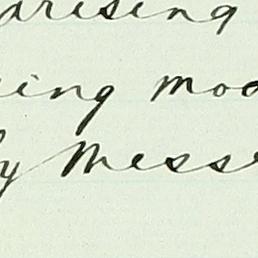 arising
ing mod
by Mess